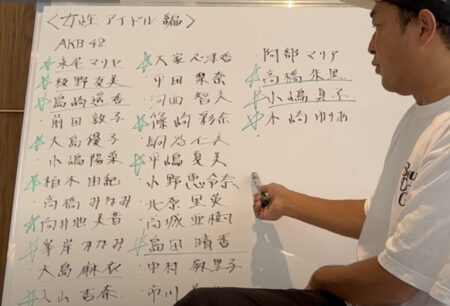 〈女性アイドル編〉
AKB48
☆永尾マリヤ
☆板野友美
☆島崎遥香
前田敦子
☆大島優子
小嶋陽菜
☆柏木由紀
高橋みなみ
☆向井地美音
☆峯岸みなみ
大島麻衣
☆入山杏奈
☆大家志津香
平田梨奈
河西智美
☆篠崎彩奈
駒谷仁美
☆平嶋夏美
小野恵令奈
北原里英
高城亜樹
☆島田晴香
中村麻里子
市川
・阿部マリア
☆高橋朱里
☆小嶋真子
☆木崎ゆりあ